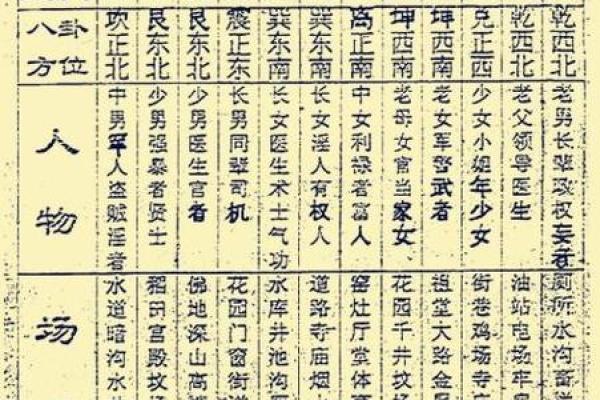 八卦
方位
坎正北
艮东北
艮东北
震正东
巽东南
巽东南
离正南
坤西南
坤西南
兑正西
乾西北
乾西北
人物
中男军人盗贼淫者
少男强暴者贤士
少男医生官者
长男同辈司机
长女医生术士气功
长女淫人有权人
中女利禄者富人
老母女官当家女
老女军警武者
少女小姐年少女
老父领导医生
老男长辈政权妄者
场
水道暗沟水
稻田宫殿坟
佛地深山高
花园门窗街道
水库井池沟
道路寺庙烟
窑灶厅堂体
花园千井坟
祖堂大路金
街巷鸡场寺
油站电场牢
厕所水沟畜